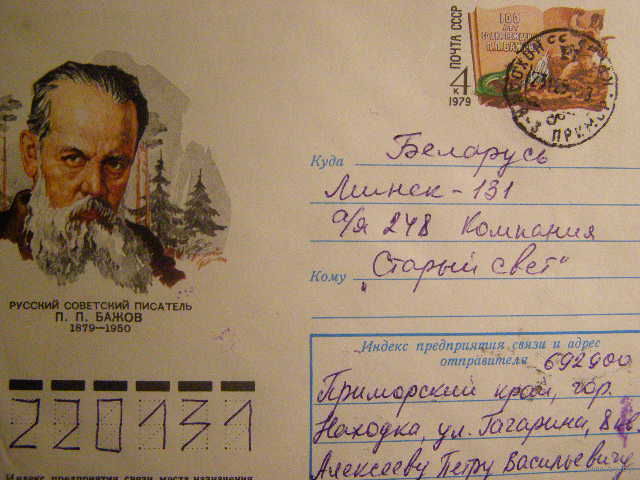 ПОЧТА СССР
4 к
1979
100
ЛЕТ
СО ДНЯ РОЖДЕНИЯ
П.П. БАЖОВА
РУССКИЙ СОВЕТСКИЙ ПИСАТЕЛЬ
П. П. БАЖОВ
1879—1950
Куда Беларусь
Минск-131
а/я 248 Компания
Кому „Старый свет"
Индекс предприятия связи и адрес
отправителя 692900
Приморский край, гор.
Находка, ул. Гагарина, 8 кв.
Алексееву Петру Васильевичу
220131
Индекс предприятия связи места назначения